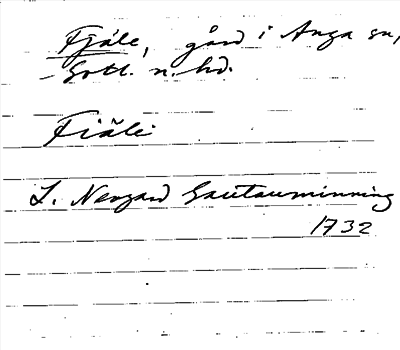 Fjäle, gård i Anga sn,
Gotl. n. hd.
Fiäle
L. Neogard Gautauminning
1732